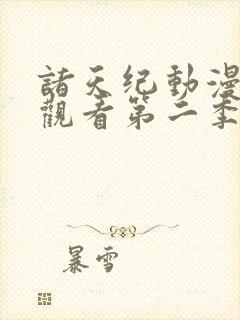 諸天纪動漫
觀看第二季
暴雪